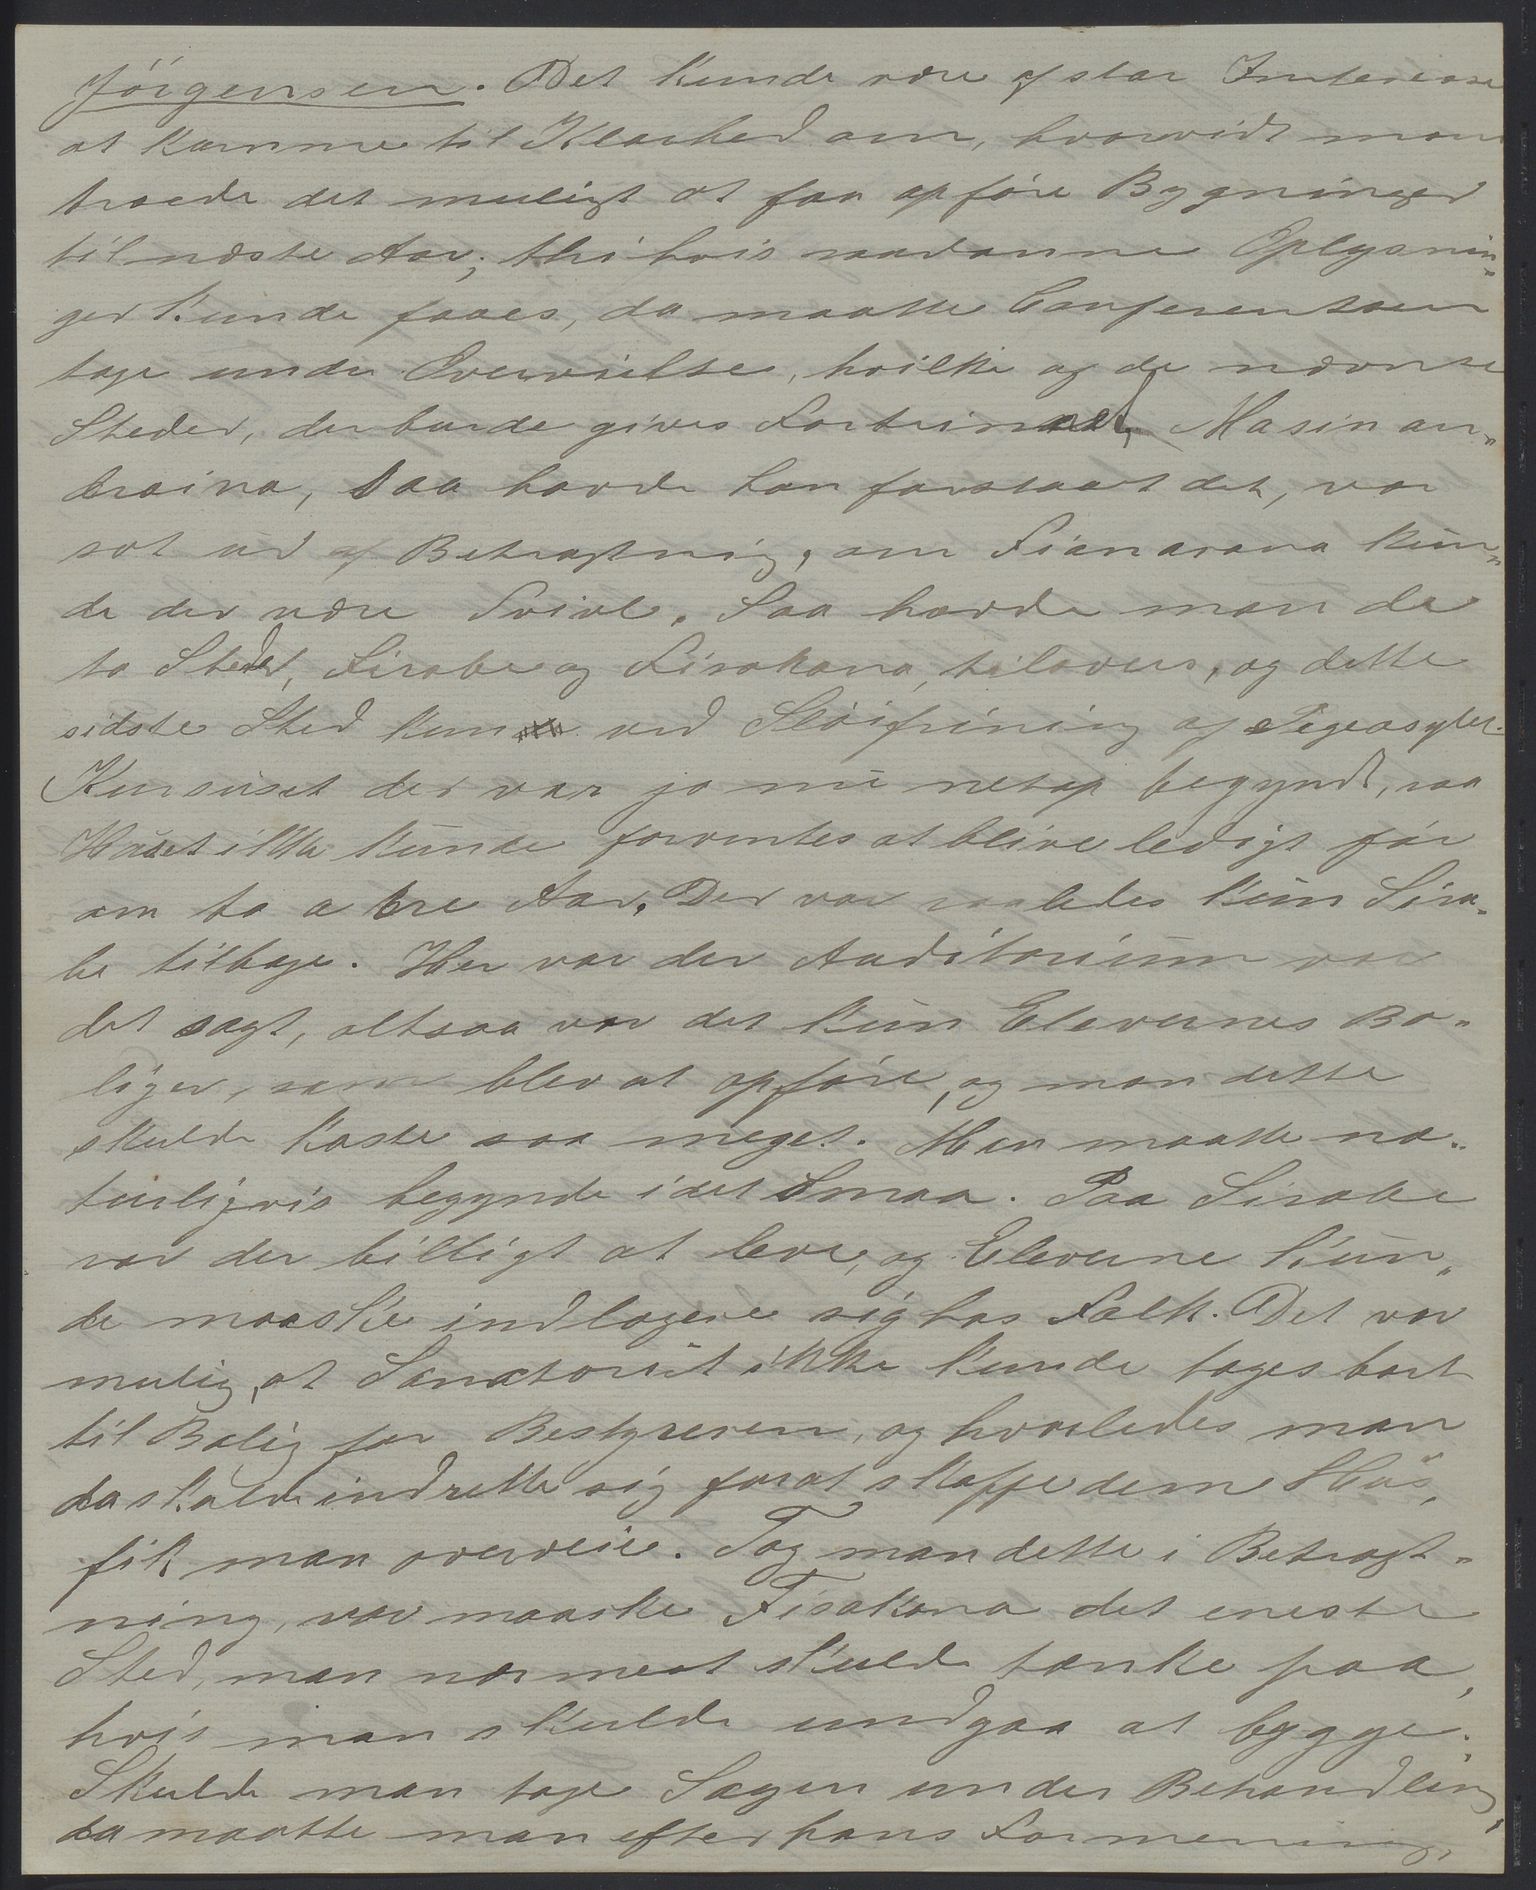 Jörgensen. Det kunde være af stor Interesse
at komme til Klarhed om, hvorvidt man
troede det muligt at faa opføre Bygninger
til næste Aar; thi hvis saadanne Oplysnin-
ger kunde faaes, da maatte Conferentsen
tage under Overveielse, hvilke af de nævnte
Steder, der burde gives Fortrinnet. Masinan-
draina, saa havde han forstaaet det, var
sat ud af Betragtning, om Fianarana kun-
de der være Tvivl. Saa havde man de
to Steder, Sirabe og Fisakana, tilovers, og dette
sidste Sted kun ved Sløifning af Pigeasylet.
Kurset der var jo nu netop begyndt, saa
Huset ikke kunde forventes at blive ledigt før
om to a tre Aar. Der var saaledes kun Sira-
be tilbage. Her var der Auditorium var
det sagt, altsaa var det kun Elevernes Bo-
liger, som blev at opføre, og mon dette
skulde koste saa meget. Man maatte na-
turligvis begynde i det Smaa. Paa Sirabe
var der billigt at leve, og Eleverne kun-
de maaske indlogere sig hos Folk. Det var
mulig, at Sanatoriet ikke kunde tages bort
til Bolig for Bestyreren, og hvorledes man
da skulde indrette sig for at skaffe dem Hus,
fik man overveie. Tog man dette i Betragt-
ning, var maaske Fisakana det eneste
Sted, man nærmest skulde tænke paa,
hvis man skulde undgaa at bygge.
Skulde man tage Sagen under Behandling,
da maatte man efter hans Formening,